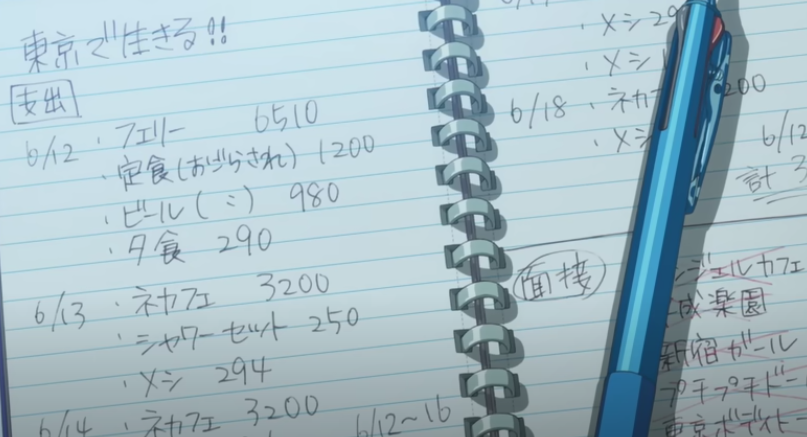 東京で生きる!!
支出
6/12 ・フェリー 6510
・定食(おごらされ) 1200
・ビール(〃) 980
・夕食 290
6/13 ・ネカフェ 3200
・シャワーセット 250
・メシ 294
6/14 ・ネカフェ 3200
6/12~16
・メシ
・メシ
6/18 ・ネカ 200
・メシ
6/12
計 3
面接
ジェルカフェ
成楽園
新宿ガール
プチプチドー
東京ボディー